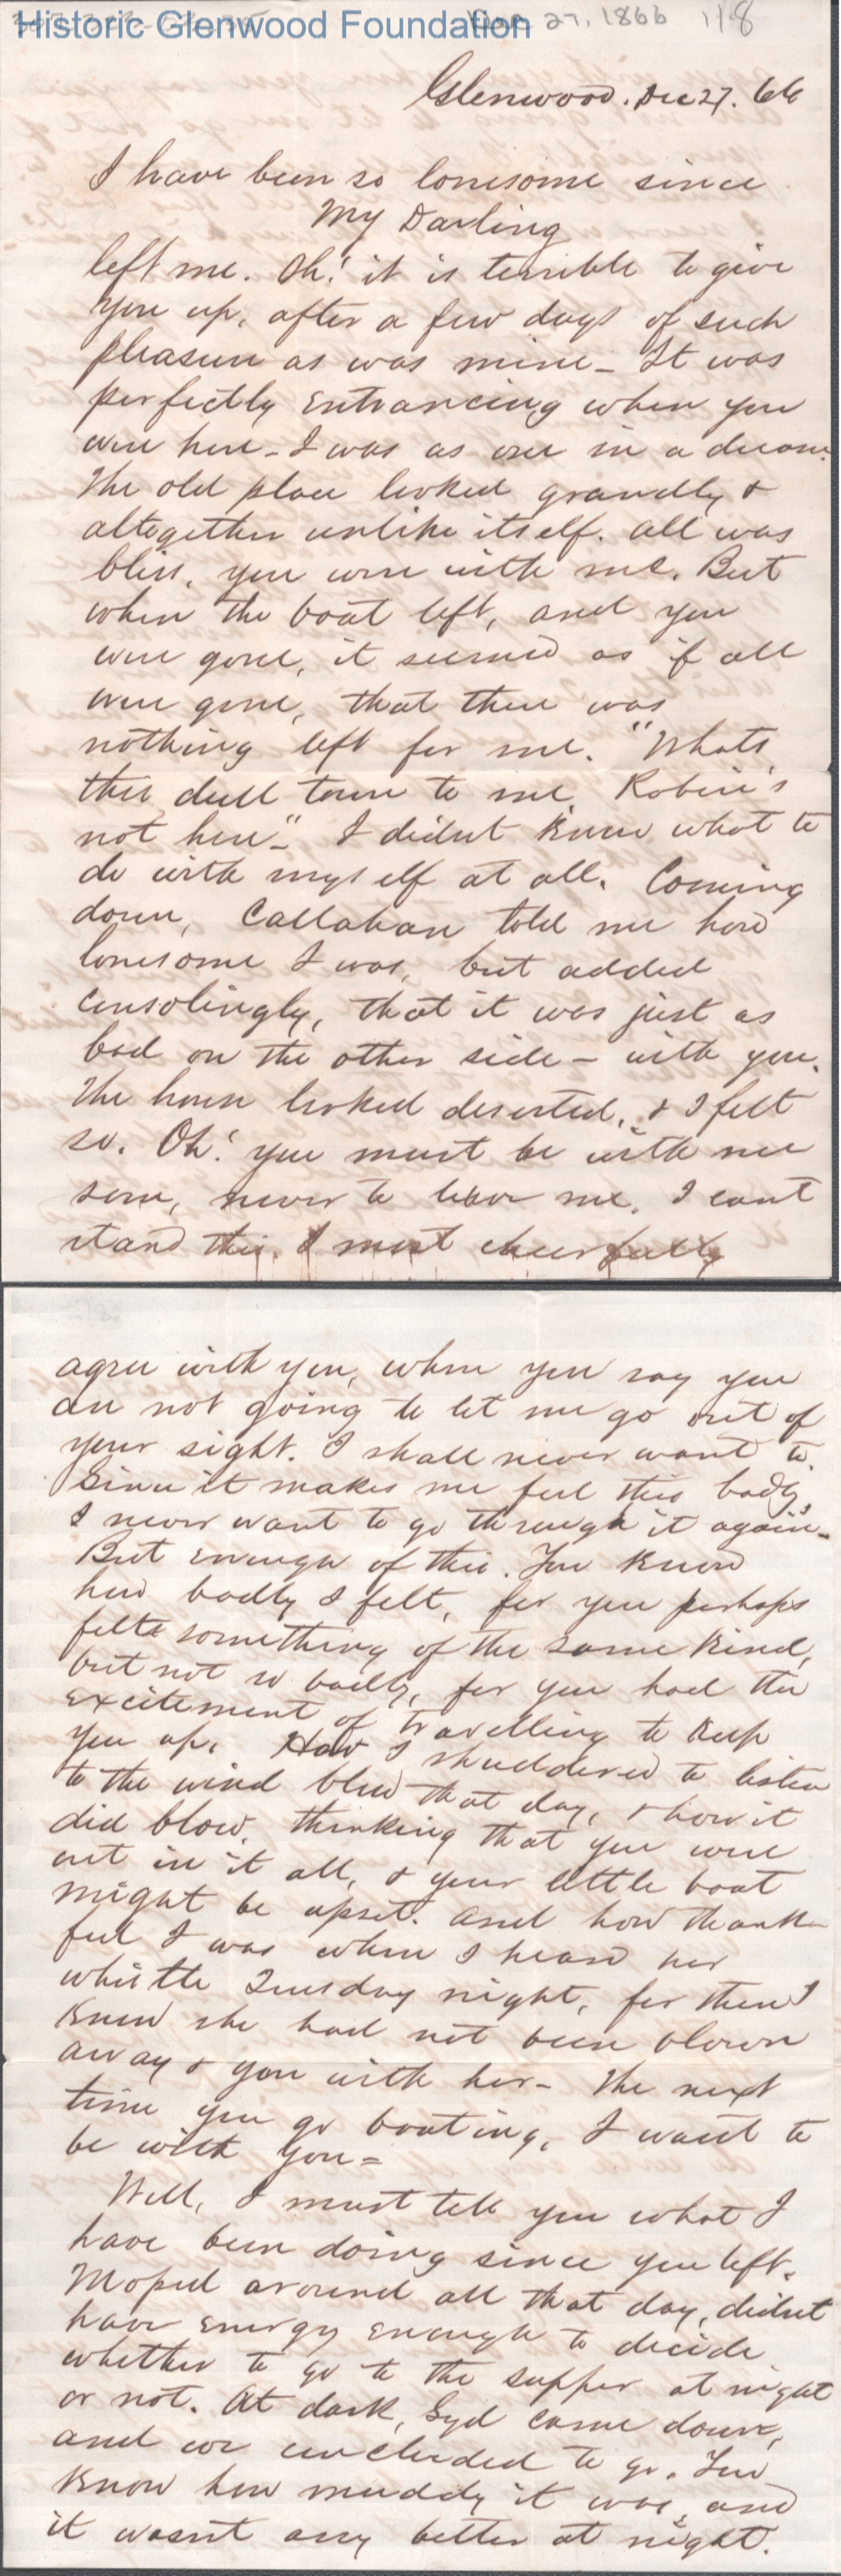 Historic Glenwood Foundation
27, 1866 118
Glenwood. Dec 27. 66
I have been so lonesome since
My Darling
left me. Oh! it is terrible to give
you up, after a few days of such
pleasure as was mine - It was
perfectly entrancing when you
were here - I was as one in a dream.
The old place looked grandly &
altogether unlike itself. all was
bliss, you were with me. But
when the boat left, and you
were gone, it seemed as if all
were gone, that there was
nothing left for me. "Whats
this dull town to me, Robin's
not here-" I didnt know what to
do with myself at all. Coming
down, Callahan told me how
lonesome I was, but added
consolingly, that it was just as
bad on the other side - with you.
The house looked deserted, & I felt
so. Oh! you must be with me
soon, never to leave me. I cant
stand this. I most cheerfully
agree with you, when you say you
are not going to let me go out of
your sight. I shall never want to.
Since it makes me feel this badly,
I never want to go through it again -
But enough of this. You know
how badly I felt, for you perhaps
felt something of the same kind,
but not so badly, for you had the
excitement of travelling to keep
you up. How I shuddered to listen
to the wind blow that day, & how it
did blow, thinking that you were
out in it all, & your little boat
might be upset. And how thank-
ful I was when I heard her
whistle Tuesday night, for then I
knew she had not been blown
away & you with her - The next
time you go boating, I want to
be with you =
Well, I must tell you what I
have been doing since you left.
Moped around all that day, didnt
have energy enough to decide
whether to go to the supper at night
or not. At dark, Syd came down,
and we concluded to go. You
know how muddy it was, and
it wasnt any better at night.